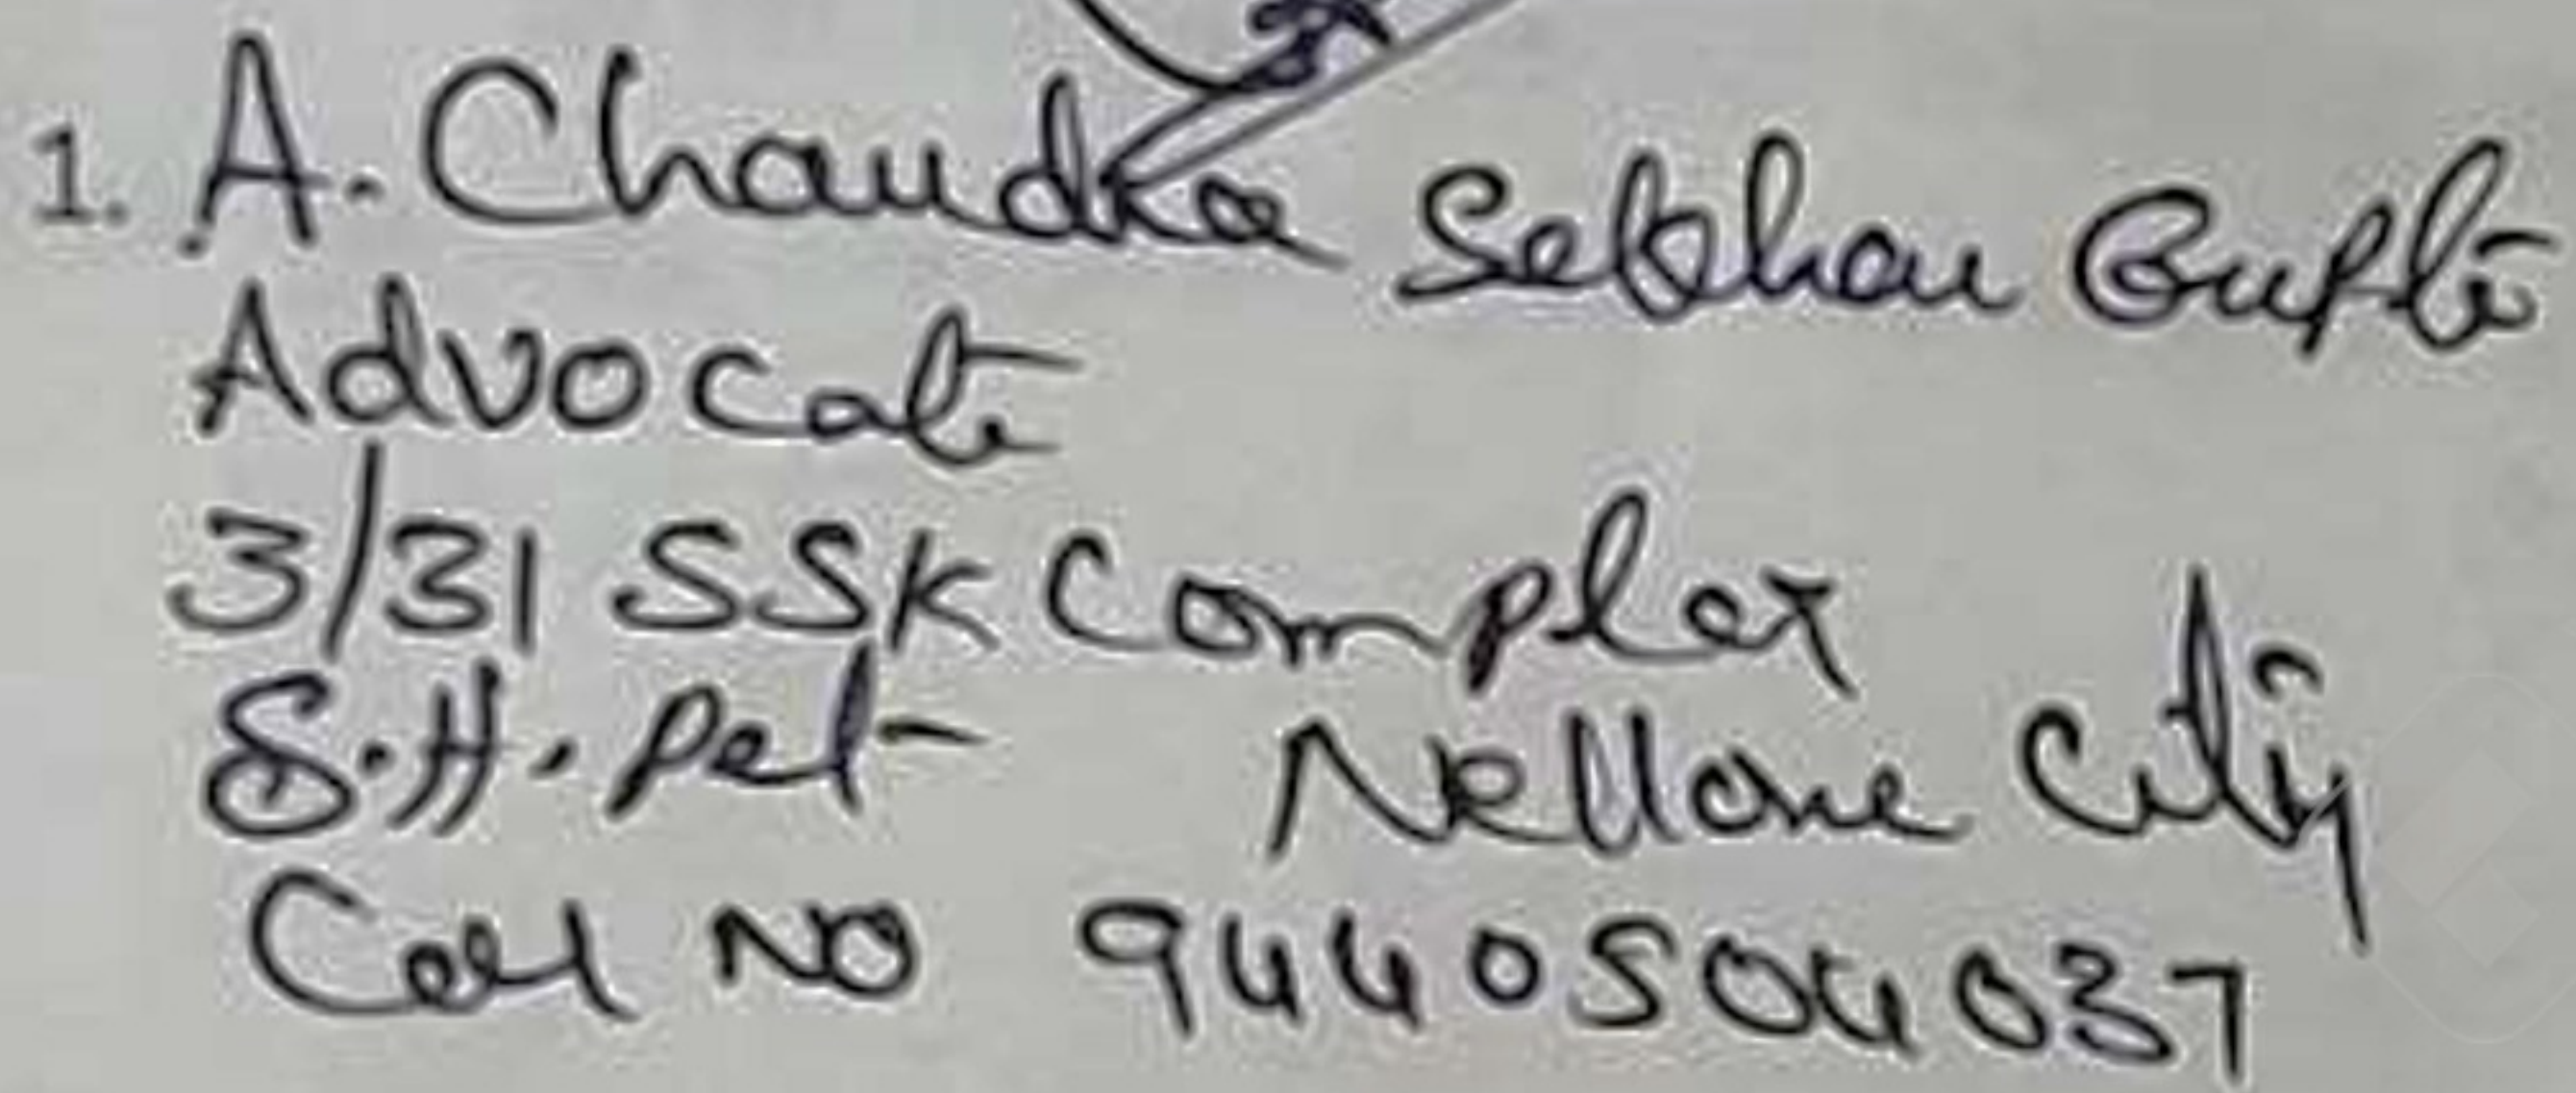 1. A. Chandra Sekhar Gupta
Advocate
3/31 SSK Complex
S.H. Pet Nellore City
Cell No 9440504037